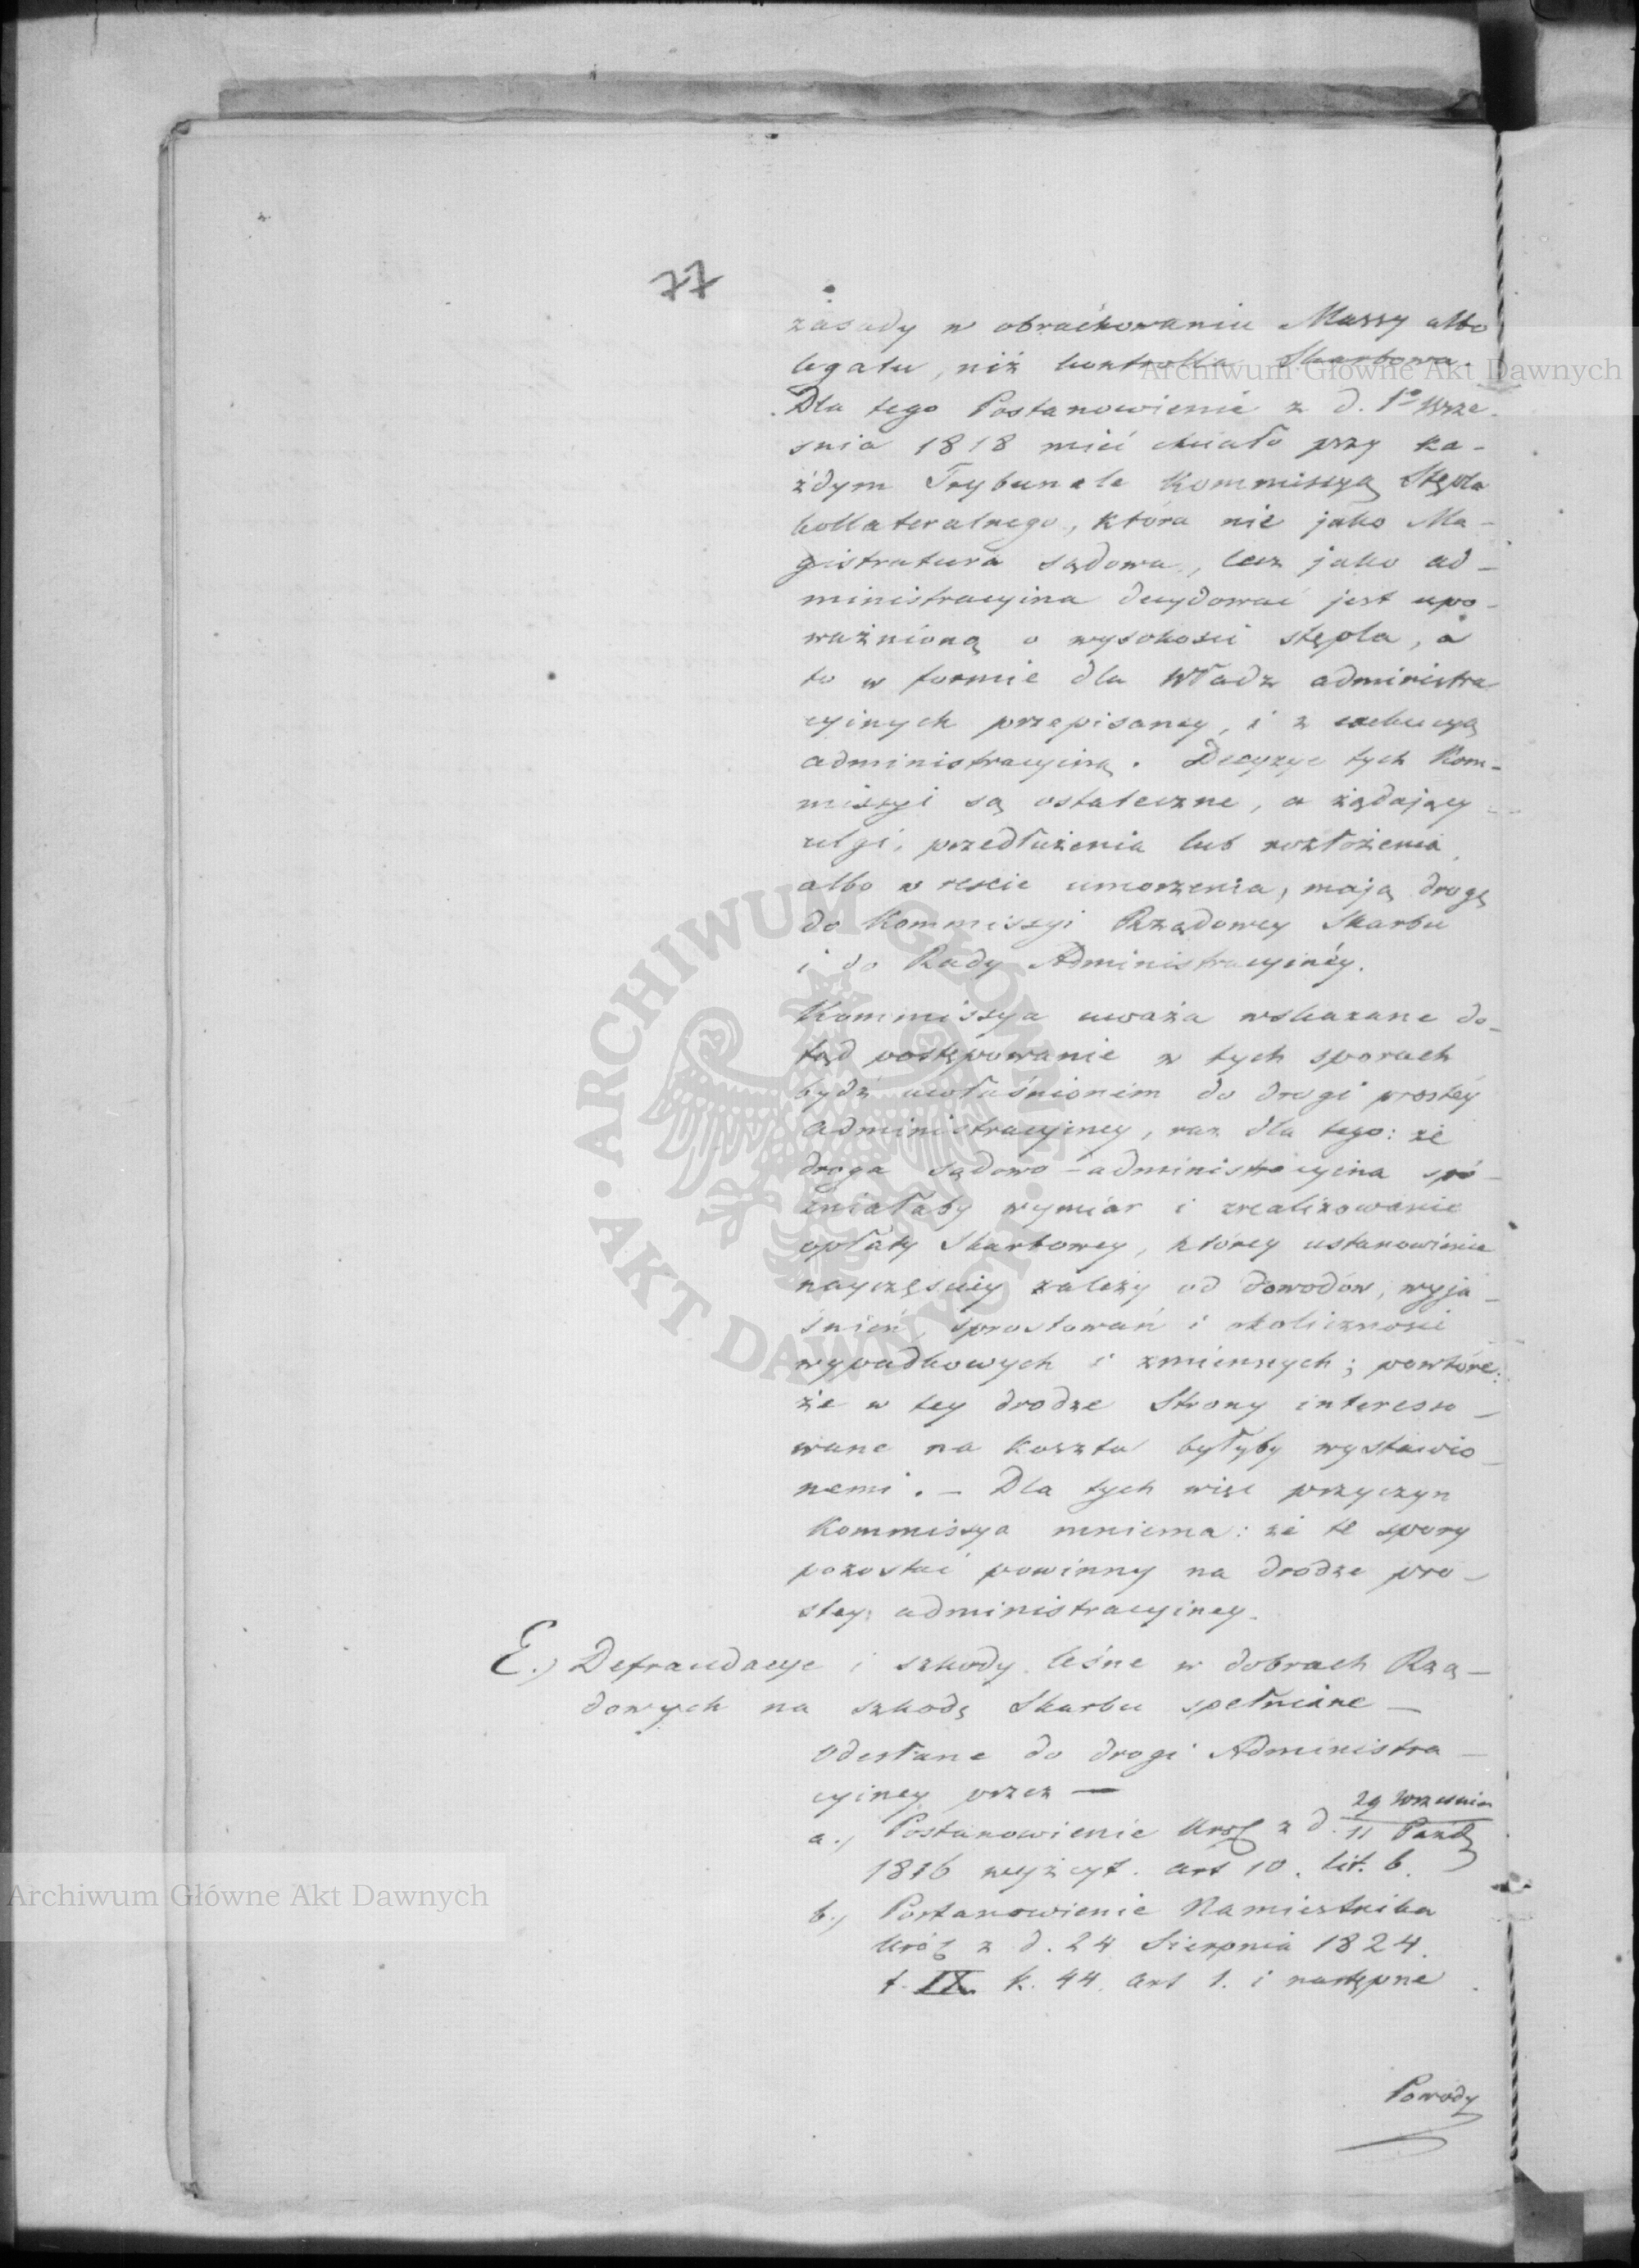 77
zasady w obrachowaniu Massy albo
legatu, niż kontrolla Skarbowa.
Dla tego Postanowienie z d. 1º Wrze-
śnia 1818 mieć chciało przy ka-
żdym Trybunale Kommissyą Stępla
kollateralnego, która nie jako Ma-
gistratura sądowa, lecz jako ad-
ministracyina decydować jest upo-
ważnioną o wysokości stępla, a
to w formie dla Władz administra-
cyinych przepisaney, i z exekucyą
administracyiną. Decyzye tych Kom-
missyi są ostateczne, a żądający
ulgi, przedłużenia lub rozłożenia,
albo w reście umorzenia, mają drogę
do Kommissyi Rządowey Skarbu
i do Rady Administracyinéy.
Kommissya uważa wskazane do-
tąd postępowanie w tych sporach
bydź uwłaśnionem do drogi prostéy
administracyiney, raz dla tego: że
droga sądowo-administracyina spó-
źniałaby wymiar i zrealizowanie
opłaty Skarbowey, którey ustanowienie
nayczęściey zależy od dowodów, wyja-
śnień, sprostowań i okoliczności
wypadkowych i zmiennych; powtóre:
że w tey drodze Strony interesso-
wane na koszta byłyby wystawio-
nemi. – Dla tych więc przyczyn
Kommissya mniema: że te spory
pozostać powinny na drodze pro-
stey administracyiney.
E.) Defraudacye i szkody leśne w dobrach Rzą-
dowych na szkodę Skarbu spełniane —
Odesłane do drogi Administra-
cyiney przez —
29 Września
a.) Postanowienie Król z d. 11 Paźdz
1816 wyż cyt. art 10. lit. b.
b.) Postanowienie Namiestnika
Król z d. 24 Sierpnia 1824.
t. IX. k. 44. art 1. i następne
Powody
Archiwum Główne Akt Dawnych
Archiwum Główne Akt Dawnych
ARCHIWUM GŁÓWNE · AKT DAWNYCH ·